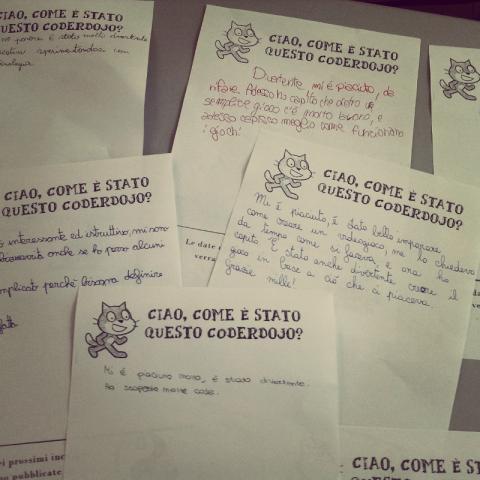 CIAO, COME È STATO
QUESTO CODERDOJO?
è stato molto divertente
con
CIAO, COME È STATO
QUESTO CODERDOJO?
Divertente, mi è piaciuto, da
rifare. Adesso ho capito che dietro un
semplice gioco c'è molto lavoro, e
adesso capisco meglio come funzionano
i giochi
CIAO, COME È STATO
QUESTO CODERDOJO?
interessante ed istruttivo, mi sono
anche se ho perso alcuni
perché bisogna definire
CIAO, COME È STATO
QUESTO CODERDOJO?
Mi è piaciuto, è stato bello imparare
come creare un videogioco, me lo chiedevo
da tempo come si faceva e ora ho
capito. È stato anche divertente creare il
gioco in base a ciò che ci piaceva.
Grazie mille!
Le date
verra
CIAO, COME È STATO
QUESTO CODERDOJO?
Mi è piaciuto molto, è stato divertente.
Ho scoperto molte cose.
ei prossimi inc
no pubblicate
CIAO, COME È STATO